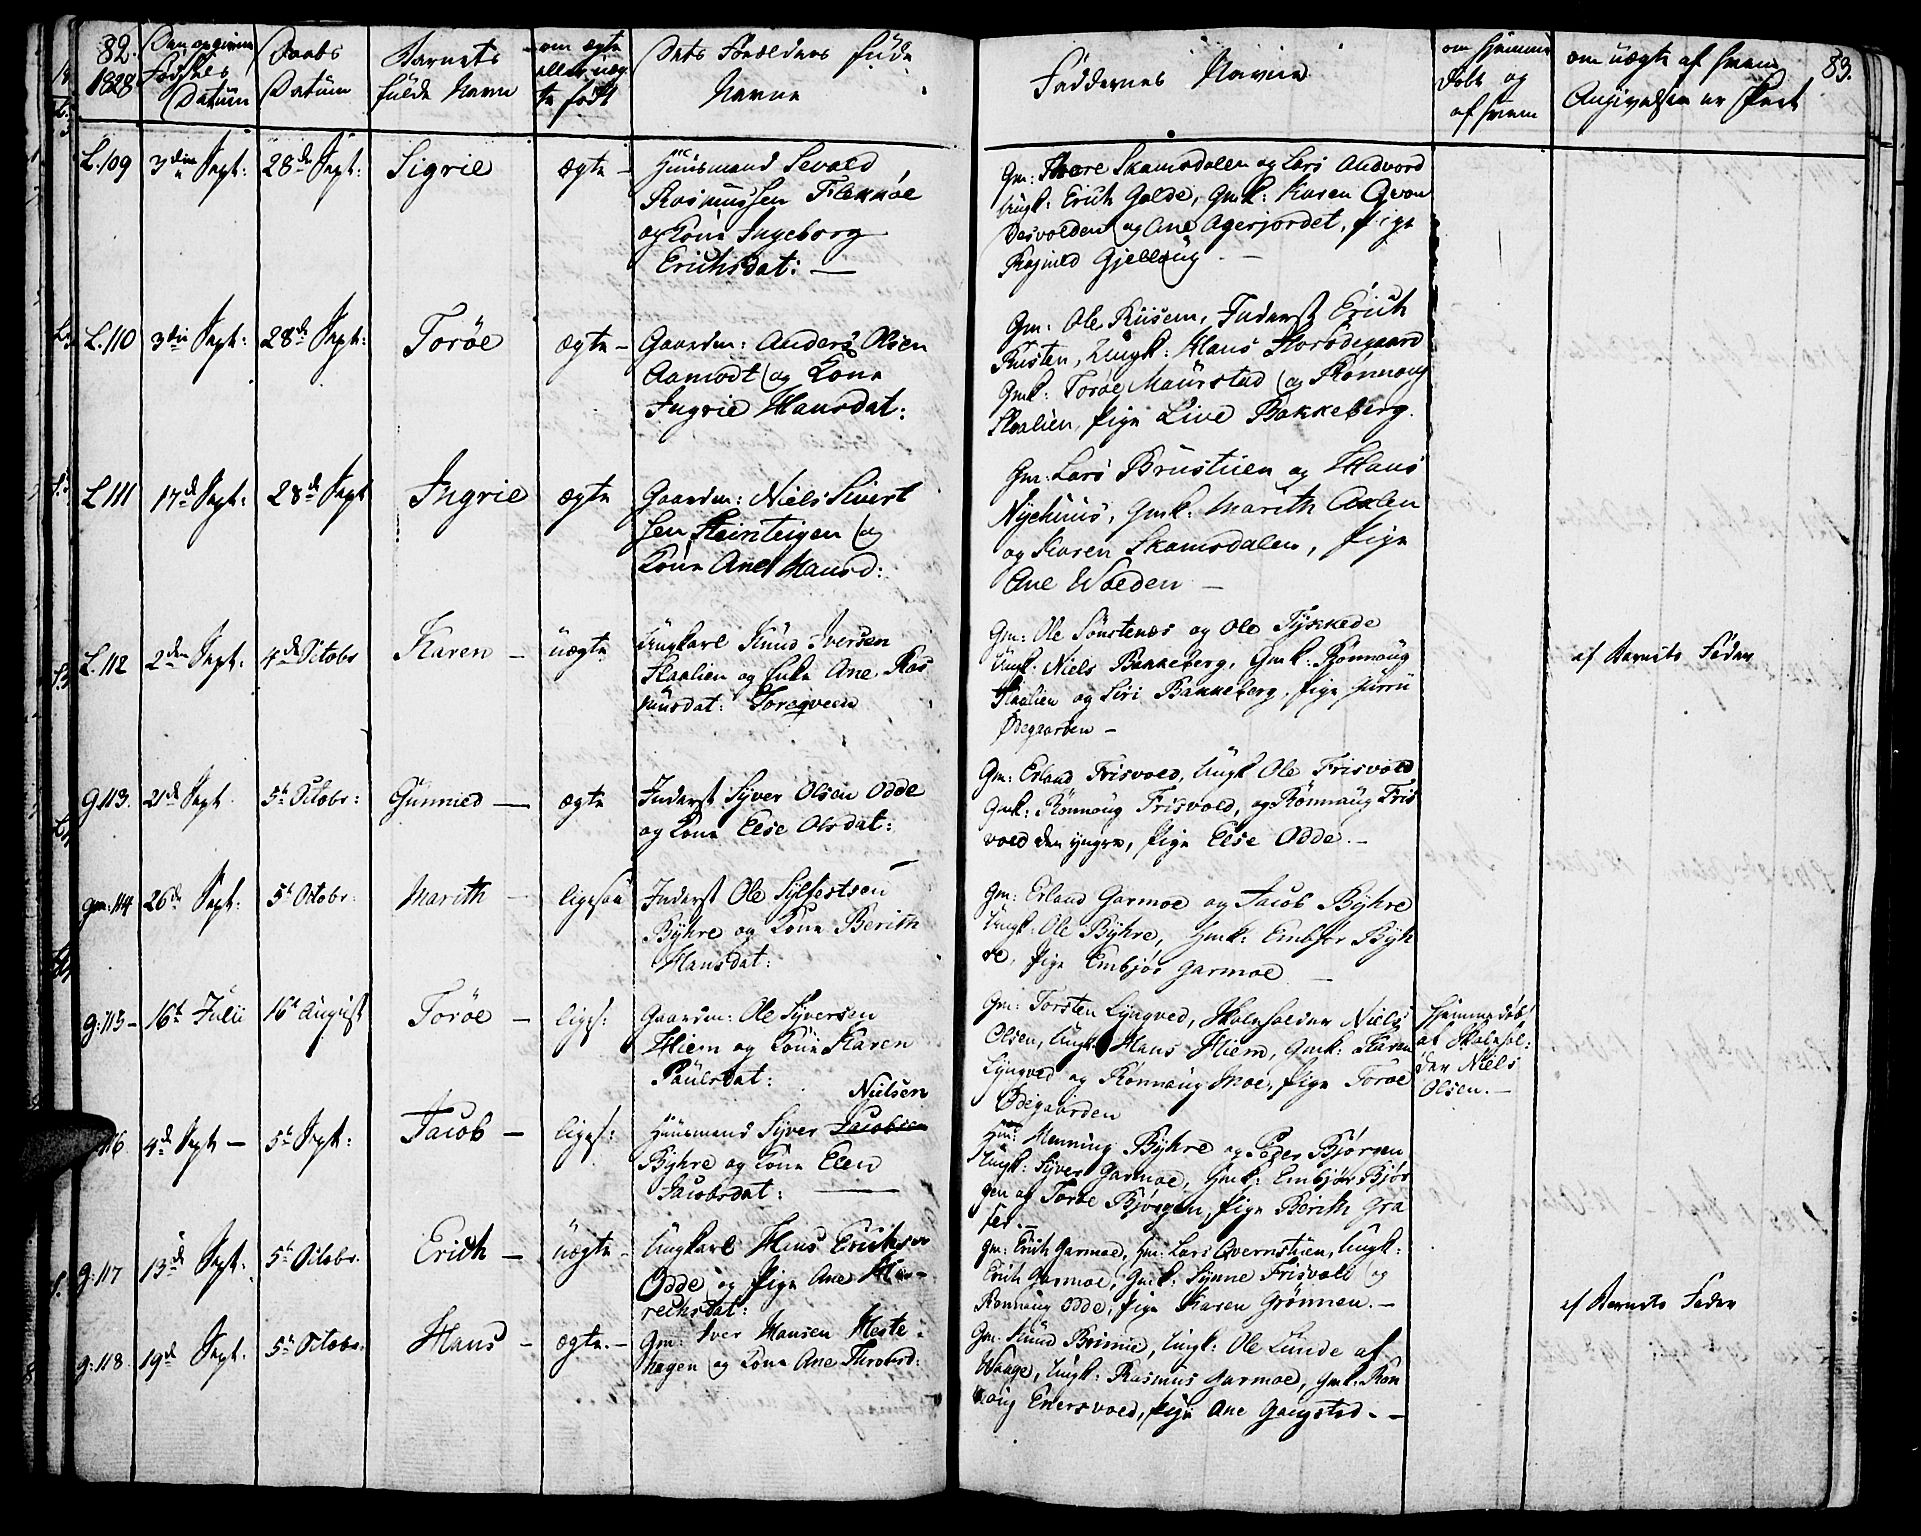 82.
1828
Den opgivne
Fødsels
Datum
Daabs
Datum
Barnets
fulde Navn
om ægte
eller uæg
te født
Dets Forældres fulde
Navne
Faddernes Navne
om hjemme
døbt og
af hvem
om uægte af hvem
Angivelsen er skeet
83.
L.109
3die Sept:
28de Sept:
Sigrie
ægte -
Huusmand Sevald
Rasmussen Flekkøe
og Kone Ingeborg
Erichsdat: —
Gm: Thore Skamsdalen og Lars Andvord
Ungk: Erich Galde, Gmk: Karen Qvan
desvolden og Ane Agerjordet, Pige
Ragnild Gjelloug —
L.110
3die Sept:
28de Sept:
Torøe
ægte -
Gaardm: Anders Olsen
Aamodt og Kone
Ingrie Hansdat:
Gm: Ole Rusten, Inderst Erich
Rusten, Ungk: Hans Storødegaard
Gmk: Torøe Maurstad og Rønnoug
Skalien, Pige Live Bakkeberg.
L.111
17de Sept:
28de Sept
Ingrie
ægte
Gaardm: Niels Sivert
sen Steinteigen og
Kone Ane Hansd:
Gm: Lars Brustuen og Hans
Nyehuus, Gmk: Marith Aalen
og Karen Skamsdalen, Pige
Ane Wolden —
L.112
2den Sept:
4de Octobr
Karen —
uægte
Ungkarl Knud Iversen
Skalien og Enke Ane Ras
musdat:
Gm: Ole Sønstenæs og Ole
Ungk: Niels Bakkeberg, Gmk: Rønnoug
Skalien og Siri Bakkeberg, Pige
Ødegaarden —
af Barnets Fader
G.113.
21de Sept.
5te Octobr:
Gunnild —
ægte
Inderst Syver Olsen Odde
og Kone Else Olsdat:
Gm: Erland Frisvold, Ungk Ole Frisvold,
Gmk: Rønnoug Frisvold, og Rønnaug Fris
vold den yngre, Pige Else Odde. —
Gm:114
26de Sept.
5te Octobr:
Marith —
ligesaa
Inderst Ole Sylfestsen
Byhre og Kone Berith
Hansdat:
Gm: Erland Garmoe og Jacob Byhre
Ungk: Ole Byhre, Gmk: Embjør Byh
re, Pige Embjør Garmoe —
G:115 —
16te Julii
16te August
Torøe —
liges:
Gaardm: Ole Syversen
Hiem og Kone Karen
Paulsdat:
Gm: Torsten Lyngved, Skoleholder Niels
Olsen, Ungk: Hans Hiem, Gmk: Karen
Lyngved og Rønnaug Moe, Pige Torøe
Ødegaarden
Hjemmedøbt
af Skolehol:
der Niels
Olsen. —
116.
4de Sept —
5te Sept:
Jacob —
liges:
Nielsen
Huusmand Syver Jacobsen
Byhre og Kone Elen
Jacobsdat: —
Hm: Henning Byhre og Peder Bjørgen
Ungk: Syver Garmoe, Gmk: Embjør Bjør
gen og Torøe Bjørgen, Pige Berith Gra
fer. —
G:117
13de Sept.
5te Octobr.
Erich —
uægte -
Ungkarl Hans Erichsen
Odde og Pige Ane
rechsdat:
Gm: Erich Garmoe, Hm: Lars Qvernstuen, Ungk:
Erich Garmoe, Gmk: Synne Frisvold og
Rønnaug Odde, Pige Karen Grønnen. —
af Barnets Fader
G:118
19de Sept.
5te Octobr.
Hans —
ægte. —
Gm: Iver Hansen Heste
hagen og Kone Ane
Gm: Knud Brimie, Ungk: Ole Lunde af
Waage, Ungk: Rasmus Garmoe, Gmk: Røn
noug Enersvold, Pige Ane Gangstad. —